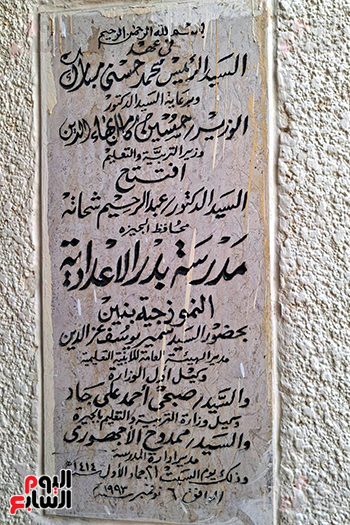 بسم الله الرحمن الرحيم
في عهد
السيد الرئيس محمد حسنى مبارك
وبرعاية السيد الدكتور
الوزير/ حسين كامل بهاء الدين
وزير التربية والتعليم
افتتح
السيد الدكتور/ عبد الرحيم شحاته
محافظ الجيزه
مدرسة بدر الاعدادية
النموذجية بنين
بحضور السيد سمير يوسف عز الدين
مدير الهيئة العامة للأبنية التعليمية
وكيل أول الوزارة
والسيد/ صبحى أحمد على جاد
وكيل وزارة التربية والتعليم بالجيزة
والسيد/ ممدوح الأجهورى
مدير ادارة المدرسة
وذلك يوم السبت ٢١ جماد الأول ١٤١٤ هـ
الموافق ٦ نوفمبر ١٩٩٣ م
اليوم
السابع